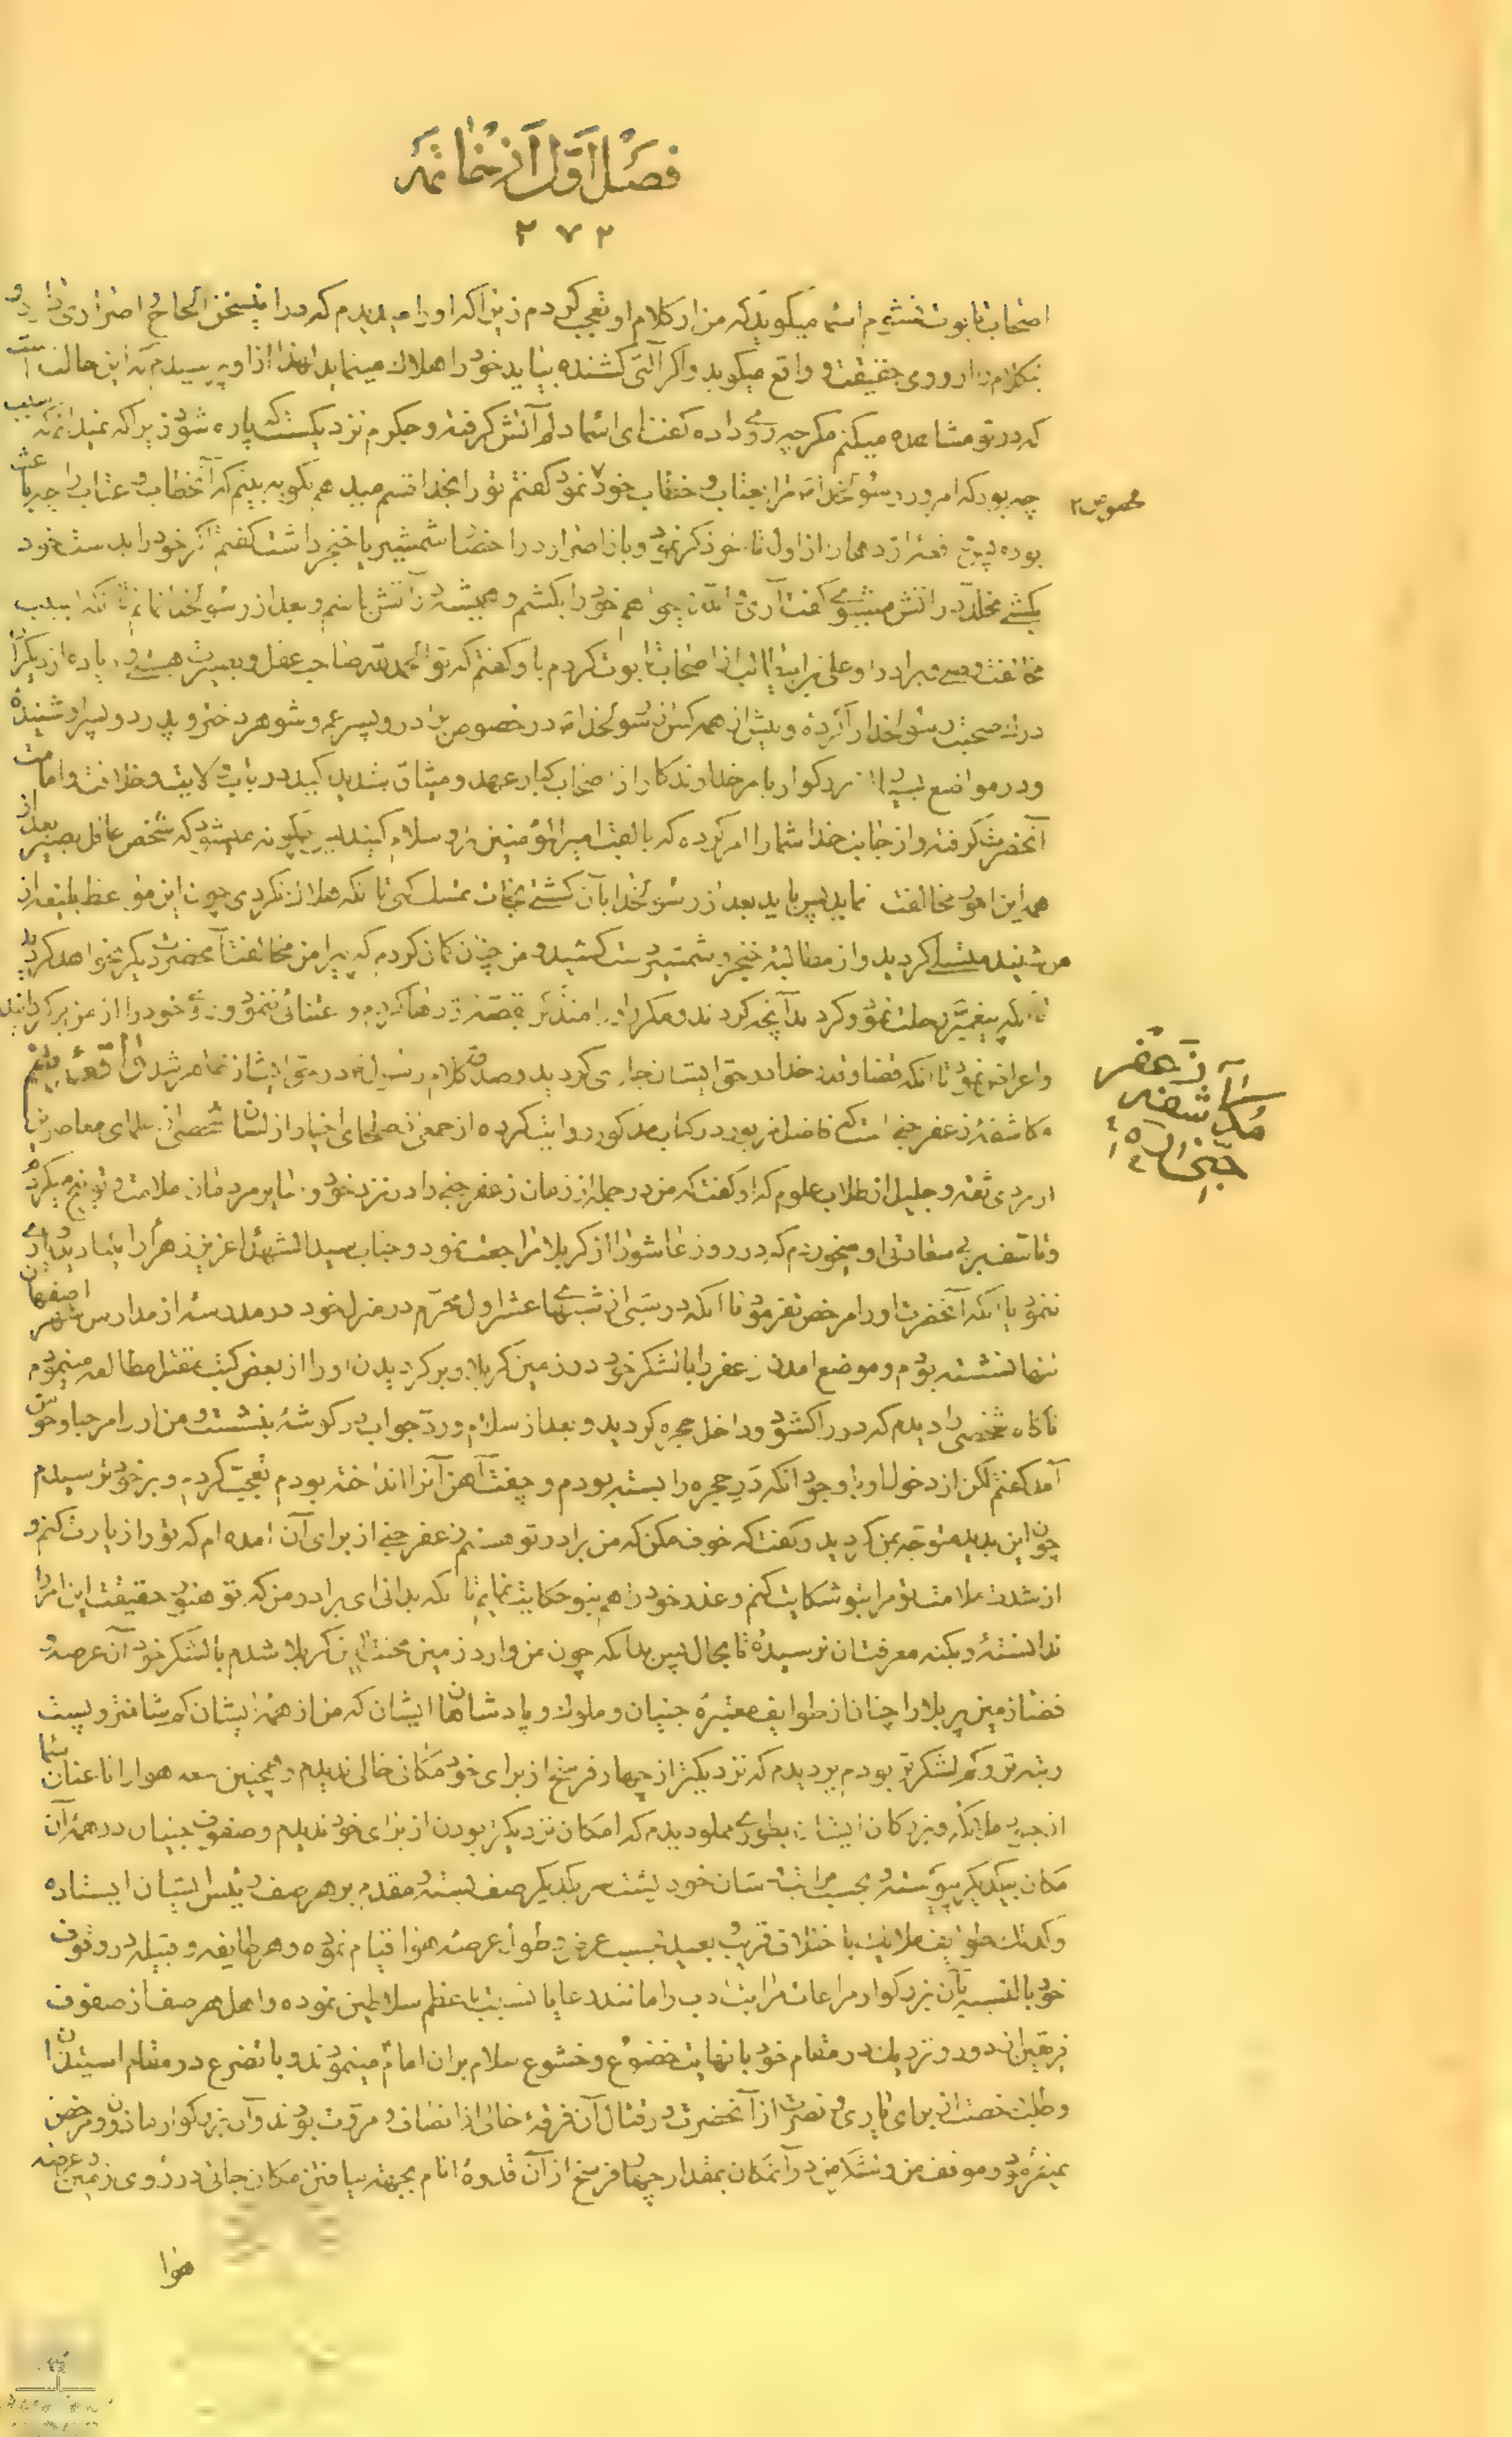 فصل اول از خاتمه
۲۷۲
اصحاب تابوت نشوم اسما میکوید که من از کلام او تعجب کردم زیرا که او را میدیدم که در این سخن الحاح و اصراری دارد و
بکلام از روی حقیقت و واقع میکوید و اکر آلتی کشنده بیابد خود را هلاک مینماید لهذا از او پرسیدم که این حالت است
که در تو مشاهده میکنم مکر چه روی داده کفت ای اسما دلم آتش کرفته و جکرم نزدیکست که پاره شود زیرا که نمیدانم که سبب
چه بود که امروز رسولخدا مرا بعتاب و خطاب خود نمود کفتم تو را بخدا قسم میدهم بکو ببینم که آنخطاب و عتاب را چه باعث
محصوص ۲
بوده
از اول تا خر ذکر نمود و باز اصرار در احضار شمشیر یا خنجر داشت کفتم اکر خود را بدست خود
بکشی مخلد در آتش میشوی کفت آری
خود را بکشم و همیشه در آتش باشم و بعد از رسولخدا نمانم تا آنکه بسبب
مخالفت وصی و برادر او علی بن ابیطالب از اصحاب تابوت کردم باو کفتم که تو الحمدلله صاحب عقل و بصیرت هستی و زیاده از دیکران
درک صحبت رسولخدا را کرده و بیش از همه کس از رسولخدا در خصوص برادر و پسر عم و شوهر دختر و پدر دو پسر او شنیده
و در مواضع
بزرکوار بامر خداوند کار از اصحاب کبار عهد و میثاق شدید اکید در باب ولایت و خلافت و امامت
آنحضرت کرفته و از جانب خدا شما را امر کرده که بالقب امیر المؤمنین بر او سلام کنید پس چکونه میشود که شخص عاقل بصیر بعد از
همه این امور مخالفت نماید پس باید بعد از رسولخدا بآن کشتی نجات تمسک کنی تا آنکه هلاک نکردی چون این مواعظ بلیغه از
من شنید متسلی کردید و از مطالبه خنجر و شمشیر دست کشید و من چنان کمان کردم که پیرامن مخالفت آنحضرت دیکر نخواهد کردید
تا آنکه پیغمبر رحلت نمود و کردند آنچه کردند و مکرر او را متذکر قصه
و اعتنائی ننمود و روی خود را از من بر کردانید
و اعراض نمود تا آنکه قضاء خدا در حق ایشان جاری کردید و صدق کلام رسول در حق ایشان ظاهر شد
سیم
مکاشفه زعفر جنی است که فاضل مزبور در کتاب مذکور روایت کرده از جمعی از صلحای اخیار از لسان شخصی از علمای معاصر با
او مردی ثقه و جلیل از طلاب علوم که او کفت که من در جمله از زمان زعفر جنی را در نزد خود و سایر مردمان ملامت و توبیخ میکردم
و تأسف بر بی سعادتی او میخوردم که در روز عاشورا از کربلا مراجعت نمود و جناب سید الشهداء عزیز زهرا را
ننمود با آنکه آنحضرت او را مرخص نفرمود تا آنکه در شبی از شبهای عشر اول محرم در منزل خود در مدرسه از مدارس شهر اصفهان
تنها نشسته بودم و موضع آمدن زعفر را با لشکر خود در زمین کربلا و بر کردیدن او را از بعض کتب مقتل مطالعه مینمودم
ناکاه شخصی را دیدم که در را کشود و داخل حجره کردید و بعد از سلام و رد جواب در کوشه بنشست و من او را مرحبا و خوش
آمد کفتم لکن از دخول او با وجود آنکه در حجره را بسته بودم و چفت آهن آنرا انداخته بودم تعجب کردم و بر خود ترسیدم
چون این بدید متوجه بمن کردید و کفت که خوف مکن که من برادر تو هستم زعفر جنی از برای آن آمده ام که تو را زیارت کنم و
از شدت ملامت تو مرا بتو شکایت کنم و عذر خود را هم بتو حکایت نمایم تا آنکه بدانی ای برادر من که تو هنوز حقیقت این امر را
ندانسته و بکنه معرفتش نرسیدهٔ تا بحال پس بدانکه چون من وارد زمین محنت قرین کربلا شدم با لشکر خود آن عرصه و
فضا زمین پر بلا را چنان از طوایف معتبرهٔ جنیان و ملوک و پادشاهان ایشان که من از همه ایشان کم شانتر و پست
رتبه تر و کم لشکرتر بودم پر دیدم که نزدیکتر از چهار فرسخ از برای خود مکانی خالی ندیدم و همچنین سعه هوا را تا عنان سما
از جنود ملائکه و بزرکان ایشان بطوری مملو دیدم که امکان نزدیکتر بودن از برای خود ندیدم و صفوف جنیان در همه آن
مکان بیکدیکر پیوسته و بحسب مراتب شان خود پشت سر یکدیکر صف بسته و مقدم بر هر صف رئیس ایشان ایستاده
و کذلک طوایف ملائکه باختلاف قریب و بعید بحسب عرض و طول عرصه هوا قیام نموده و هر طایفه و قبیله در وقوف
خود بالنسبه بآن بزرکوار مراعات مراتب ادب را مانند رعایا نسبت باعظم سلاطین نموده و اهل هر صف از صفوف
فریقین از دور و نزدیک در مقام خود با نهایت خضوع و خشوع سلام بر آن امام مینمودند و با تضرع در مقام استیذان
و طلب رخصت از برای یاری و نصرت از آنحضرت در قتال آن فرقهٔ خالی از انصاف و مروت بودند و آن بزرکوار ماذون و مرخص
نمیفرمود و موقف من و لشکر من در آنمکان بمقدار چهار فرسخ از آن قدوهٔ انام بجهت نیافتن مکان جائی در روی زمین و عرصه
هوا
زعفر
مکاشفه
جنی